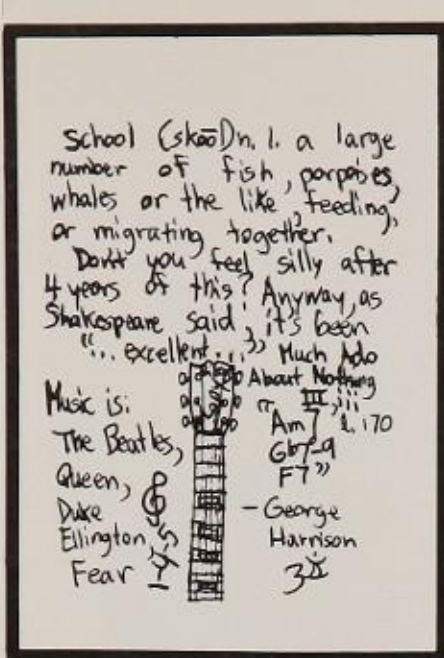 School (skōōl) n. 1. a large
number of fish, porpoises,
whales or the like, feeding,
or migrating together.
Don't you feel silly after
4 years of this? Anyway, as
Shakespeare said, it's been
"... excellent..." Much Ado
About Nothing
III, iii
l. 170
Music is:
The Beatles,
Queen,
Duke
Ellington,
Fear
"Am7
Gb7-9
F7"
- George
Harrison